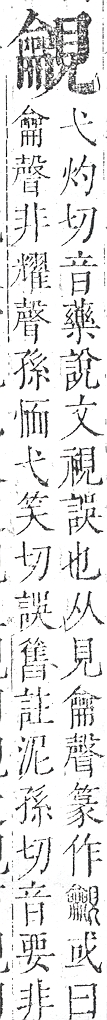 覦
弋灼切音藥說文視誤也从見龠聲篆作覦或曰
龠聲非耀聲孫愐弋笑切誤舊註泥孫切音要非